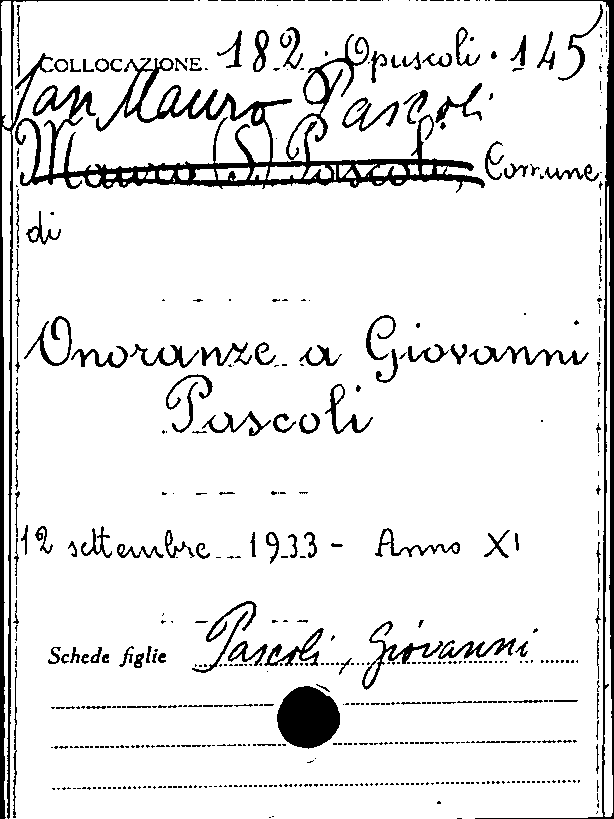 COLLOCAZIONE. 182. Opuscoli. 145
San Mauro Pascoli
Mauro (S.) Pascoli, Comune
di
Onoranze a Giovanni
Pascoli
12 settembre 1933 - Anno XI
Schede figlie Pascoli, Giovanni